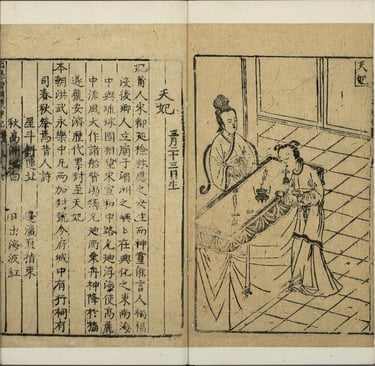 天妃
天妃 三月二十三日生
妃莆人宋都巡檢林愿之女生而神靈能言人禍福
沒後鄉人立廟于湄洲之嶼上在興化之東南海
中與琉球國相望宋宣和中路允迪浮海使高麗
中流風大作諸船皆溺獨允迪所乘舟神降於檣
遂獲安濟歷代累封至天妃
本朝洪武永樂中凡兩加封號今府城中有行祠有
司春秋祭焉昔人詩
星斗 蓬瀛直指東
秋高洲渚白 日出海波紅